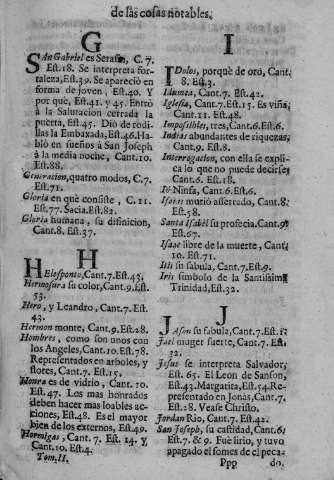 de las cosas notables.
G
SAn Gabriel es Serafin, C. 7.
Est. 18. Se interpreta for-
taleza, Est. 39. Se apareciò en
forma de joven, Est. 40. Y
por què, Est. 41. y 45. Entrò
à la Salutacion cerrada la
puerta, Est. 45. Diò de rodi-
llas la Embaxada, Est. 46. Ha-
blò en sueños à San Joseph
à la media noche, Cant. 10.
Est. 88.
Generacion, quatro modos, C. 7.
Est. 71.
Gloria en què consiste, C. 11.
Est. 77. Sacia, Est. 82.
Gloria humana, su difinicion,
Cant. 8. Est. 37.
H
HElesponto, Cant. 7. Est. 43.
Hermosura su color, Cant. 9. Est.
53.
Hero, y Leandro, Cant. 7. Est.
43.
Hermon monte, Cant. 9. Est. 28.
Hombres, como son unos con
los Angeles, Cant. 10. Est. 78.
Representados en arboles, y
flores, Cant. 7. Est. 15.
Honra es de vidrio, Cant. 10.
Est. 47. Los mas honrados
deben hazer mas loables ac-
ciones, Est. 48. Es el mayor
bien de los externos, Est. 49.
Hormigas, Cant. 7. Est. 14. y
Cant. 10. Est. 4.
Tom. II.
I
IDolos, porquè de oro, Cant.
8. Est. 3.
Idumea, Cant. 7. Est. 42.
Iglesia, Cant. 7. Est. 15. Es viña,
Cant. 11. Est. 48.
Impossibles, tres, Cant. 6. Est. 6.
Indias abundantes de riquezas,
Cant. 9. Est. 8.
Interrogacion, con ella se expli-
ca lo que no puede decirse,
Cant. 6. Est. 18.
Iò Ninfa, Cant. 6. Est. 6.
Isaias muriò asserrado, Cant. 8.
Est. 58.
Santa Isabèl su profecia, Cant. 9.
Est. 67.
Isaac libre de la muerte, Cant.
10. Est. 71.
Isis su fabula, Cant. 7. Est. 9.
Iris simbolo de la Santissima
Trinidad, Est. 32.
J
JAson su fabula, Cant. 7. Est.
Jael muger fuerte, Cant. 7. Est.
32.
Jesus se interpreta Salvador,
Est. 65. El Leon de Sanson,
Est. 43. Margarita, Est. 54. Re-
presentado en Jonàs, Cant. 7.
Est. 28. Vease Christo.
Jordan Rio, Cant. 7. Est. 42.
San Joseph, su castidad, Cant. 6.
Est. 7. & 9. Fue lirio, y tuvo
apagado el fomes de el peca-
Ppp do,